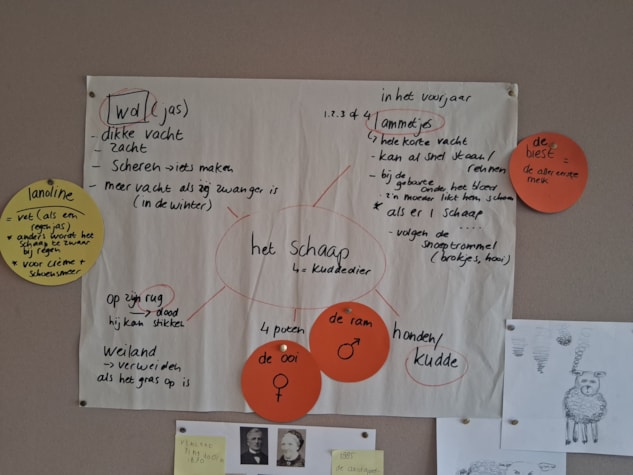 wol (jas)
- dikke vacht
- zacht
- scheren → iets maken
- meer vacht als zij zwanger is
(in de winter)
in het voorjaar
1.2.3 of 4 lammetjes
↳ hele korte vacht
- kan al snel staan/
rennen
- bij de
geboorte onder het bloed
z'n moeder likt hem schoon
* als er 1 schaap
....
- volgen de
snoeptrommel
(brokjes, hooi)
de
biest =
de aller eerste
melk
lanoline
= vet (als een
regenjas)
* anders wordt het
schaap te zwaar
bij regen
* voor crème +
schoensmeer
het schaap
↳ = kuddedier
op zijn rug
→ dood
hij kan stikken
weiland
→ verweiden
als het gras op is
4 poten
de ooi
♀
de ram
♂
honden/
kudde